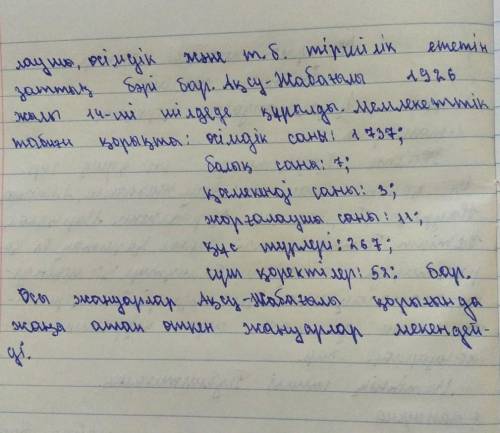 лаушы, өсімдік және т.б. тіршілік ететін
заттың бәрі бар. Ақсу-Жабағылы 1926
жылы 14-ші шілдеде құрылды. Мемлекеттік
табиғи қорықта: өсімдік саны: 1 737;
балық саны: 7;
қосмекенді саны: 3;
жорғалаушы саны: 11;
құс түрлері: 267;
сүт қоректілер: 52: бар.
Осы жануарлар Ақсу-Жабағылы қорығында
жаңа атап өткен жануарлар мекендей-
ді.